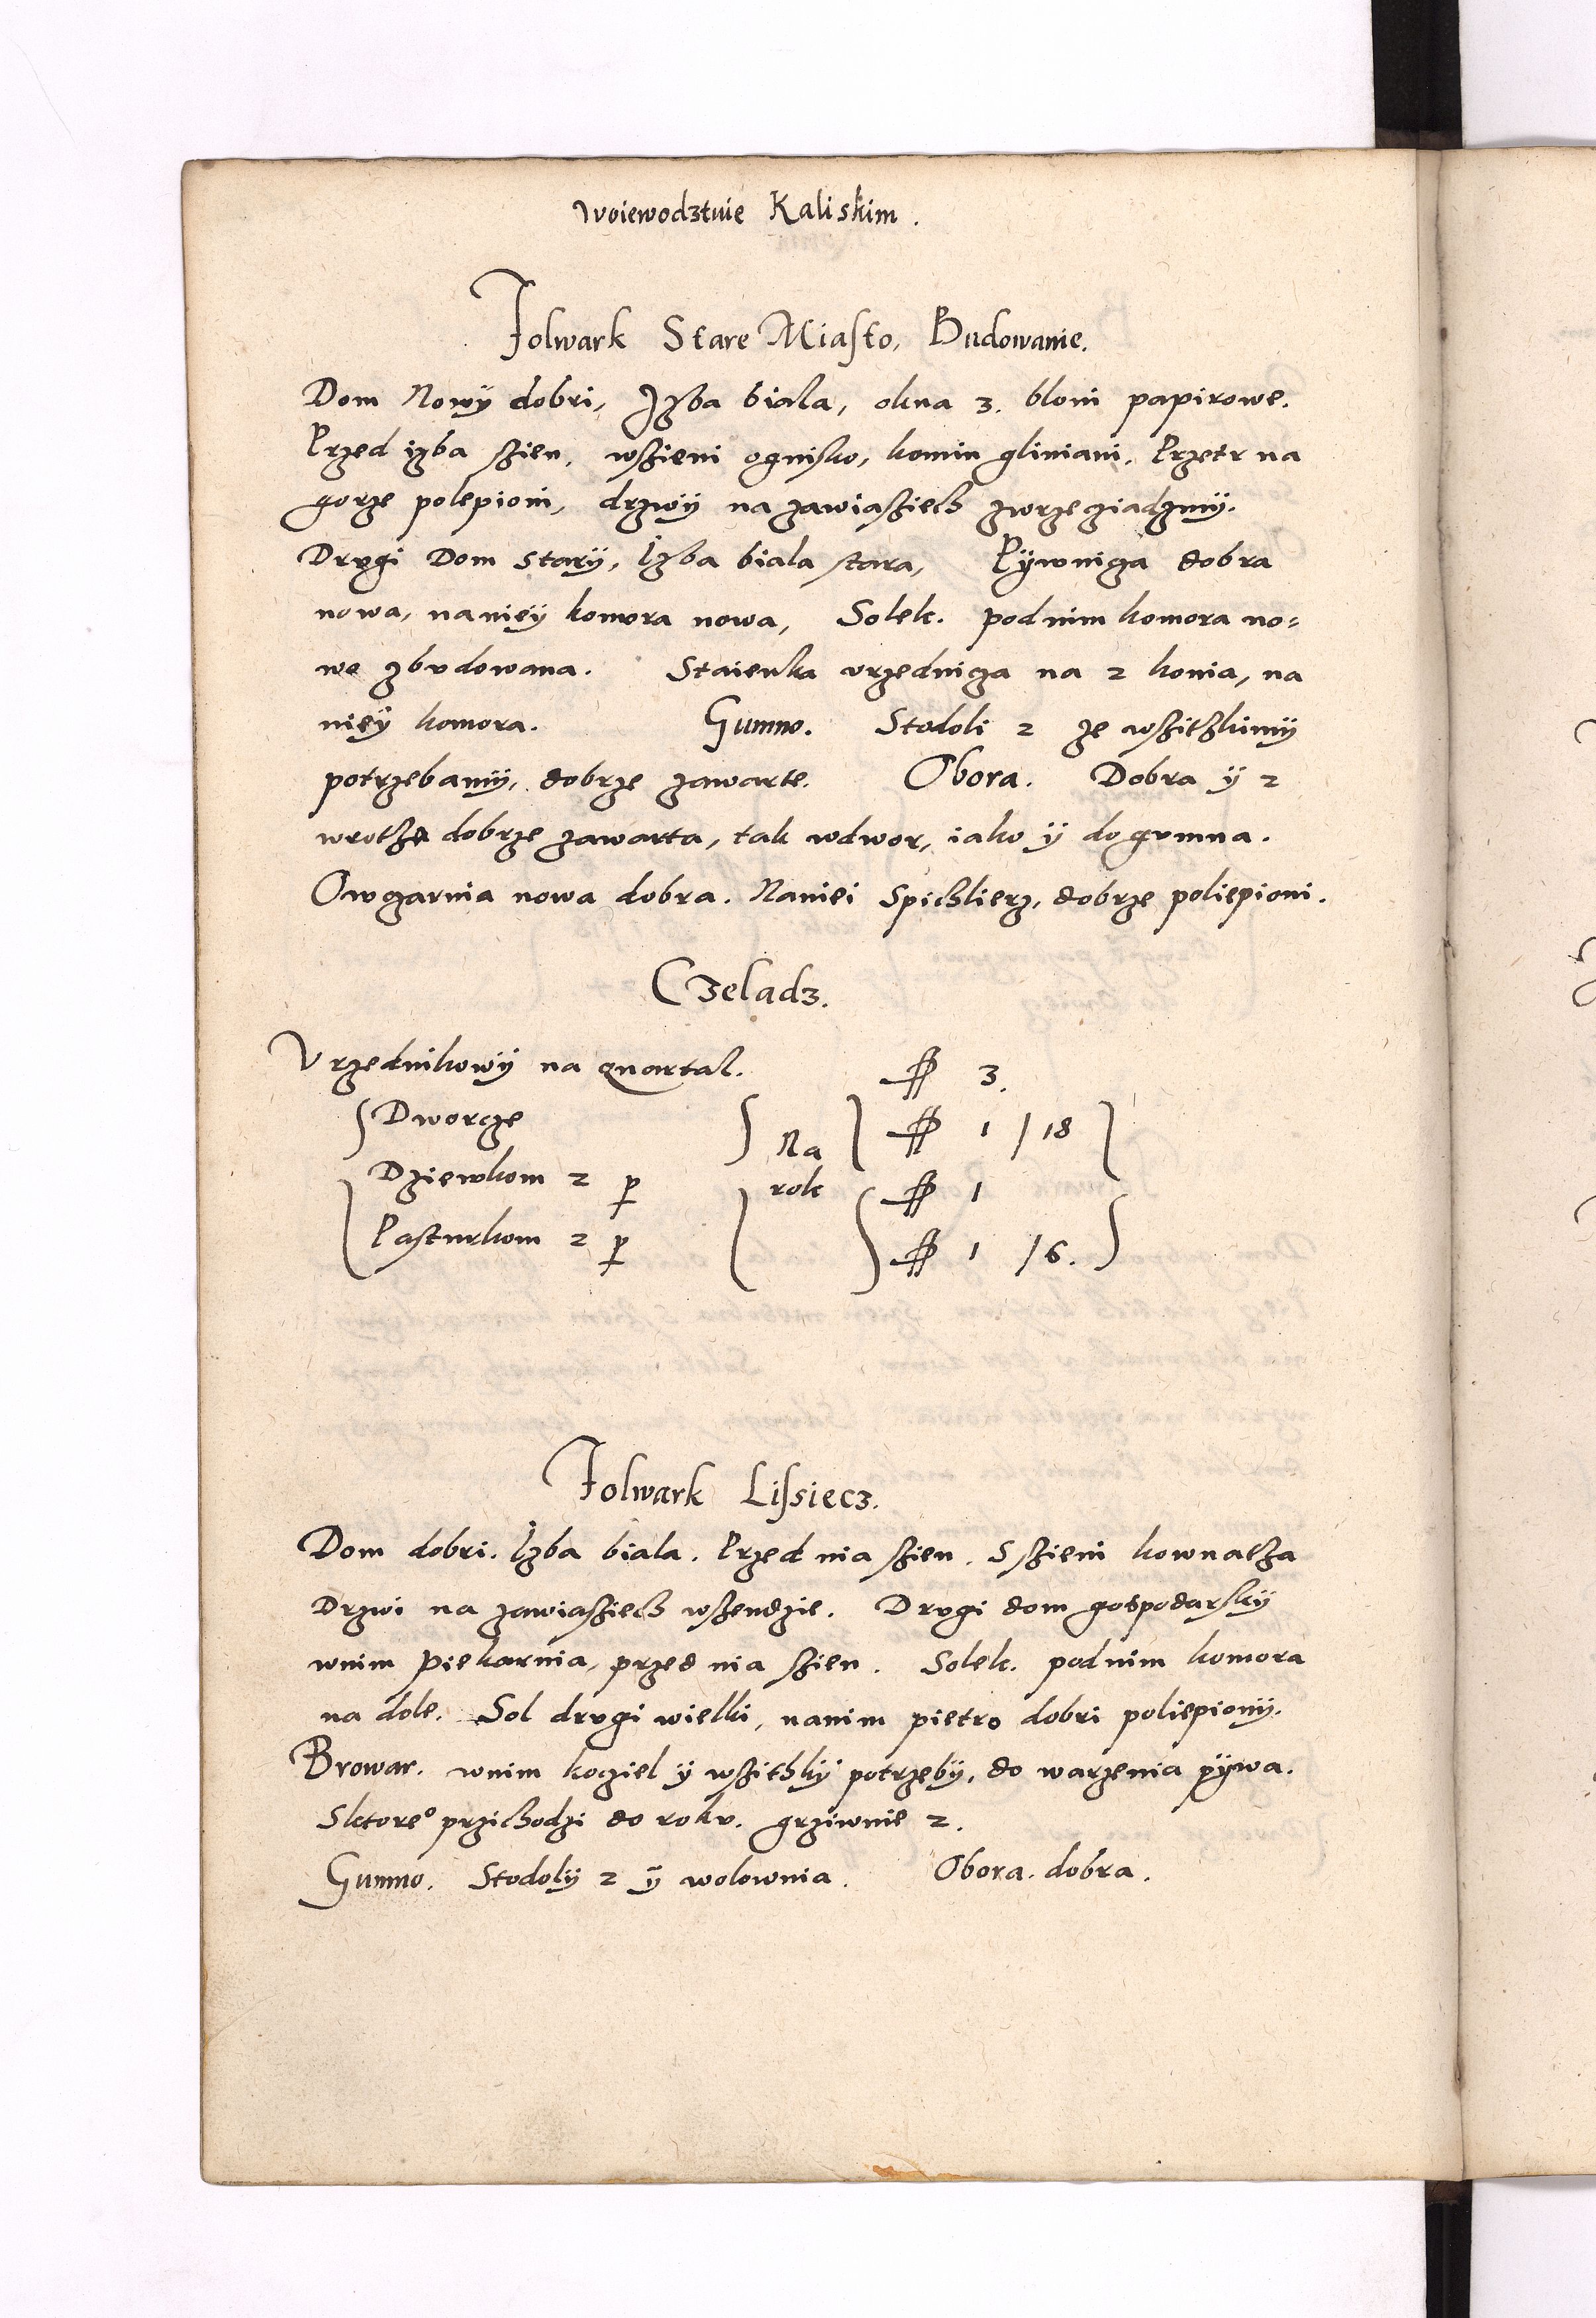 woiewodztwie Kaliskim.
Folwark Stare Miasto, Budowanie.
Dom Nowÿ dobri, Izba biala, okna 3. bloni papirowe.
Przed izba szien, wszieni ognisko, komin gliniani, Przetr na
gorze polepioni, drzwÿ na zawiasziech zwrzeziadzmÿ.
Drvgi Dom starÿ, Izba biala stara, Pÿwniza dobra
nowa, na nieÿ komora nowa, Solek. pod nim komora no=
wo zbvdowana. Staienka vrzedniza na 2 konia, na
nieÿ komora. Gumno. Stodoli 2 ze wszitzkimÿ
potrzebamÿ, dobrze zawarte. Obora. Dobra ÿ 2
wrotha dobrze zawarta, tak wdwor, iako ÿ do gvmna.
Owzarnia nowa dobra. Naniei Spichlierz, dobrze poliepioni.
Czeladz.
Vrzednikowÿ na quartal. ff 3.
Dworcze Na ff 1 / 18
Dziewkom 2 p rok ff 1
Pasturkom 2 p ff 1 / 6.
Folwark Lissiecz.
Dom dobri. Izba biala. Przed nia szien. S szieni kownatza
Drzwi na zawiasziech wszendzie. Drvgi dom gospodarskÿ
wnim piekarnia, przed nia szien. Solek. pod nim komora
na dole. Sol drvgi wielki, nanim pietro dobri poliepionÿ.
Browar. wnim koziel ÿ wszithkÿ potrzebÿ, do warzenia pÿwa.
Sktore° przichodzi do rokv. grziwnie 2.
Gumno. Stodolÿ 2 ÿ wolownia. Obora. dobra.